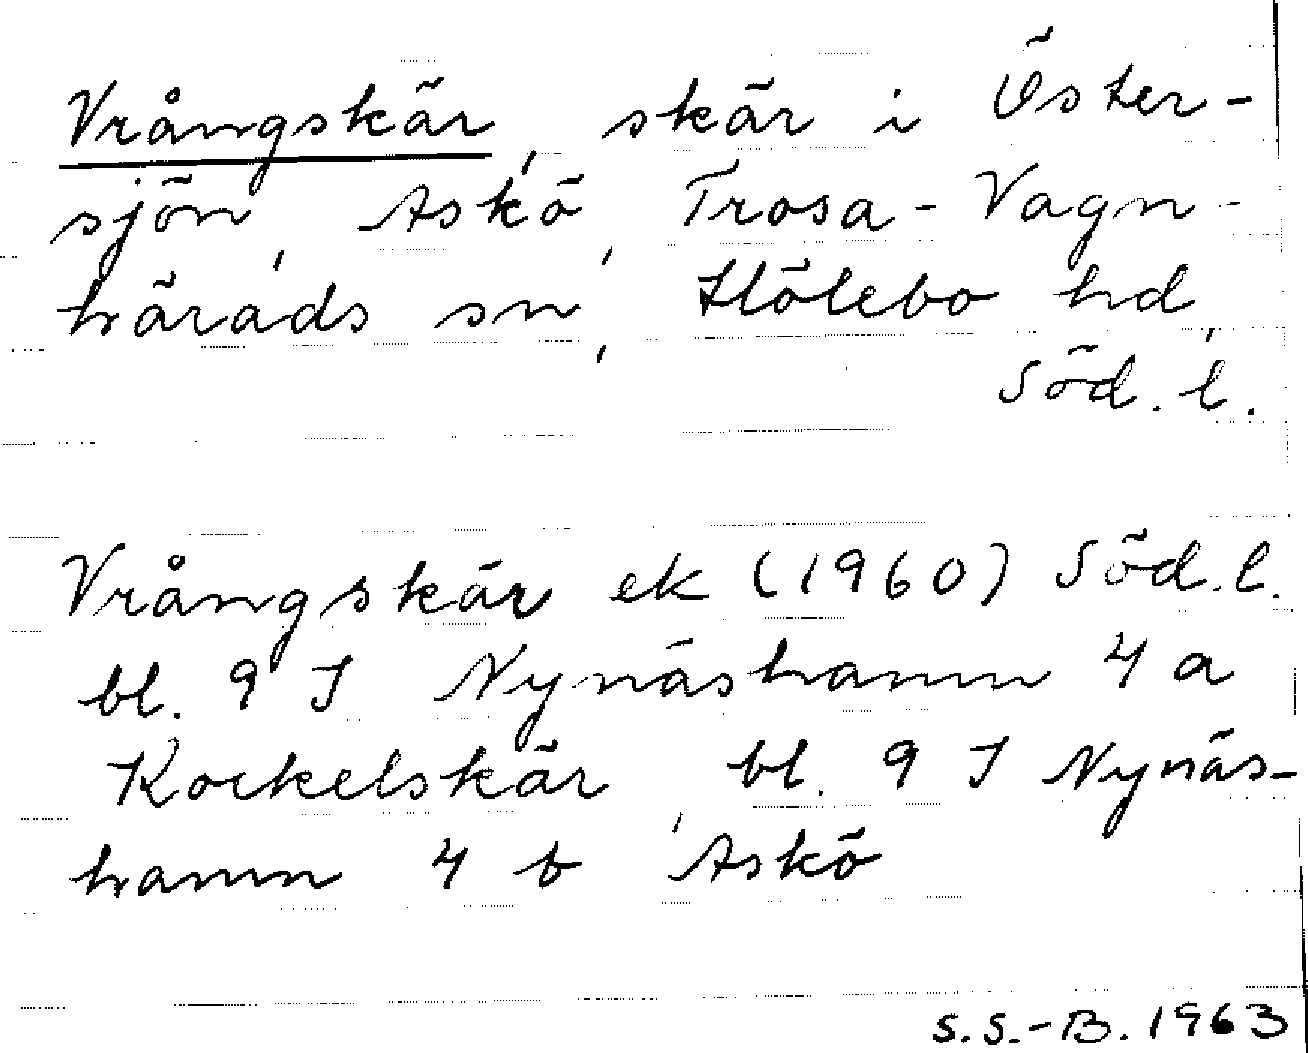 Vrångskär, skär i Öster-
sjön, Askö, Trosa-Vagn-
härads sn, Hölebo hd,
Söd. l.
Vrångskär ek (1960) Söd. l.
bl. 9 I Nynäshamn 4 a
Kockelskär, bl. 9 I Nynäs-
hamn 4 b Askö
S.S.-B. 1963